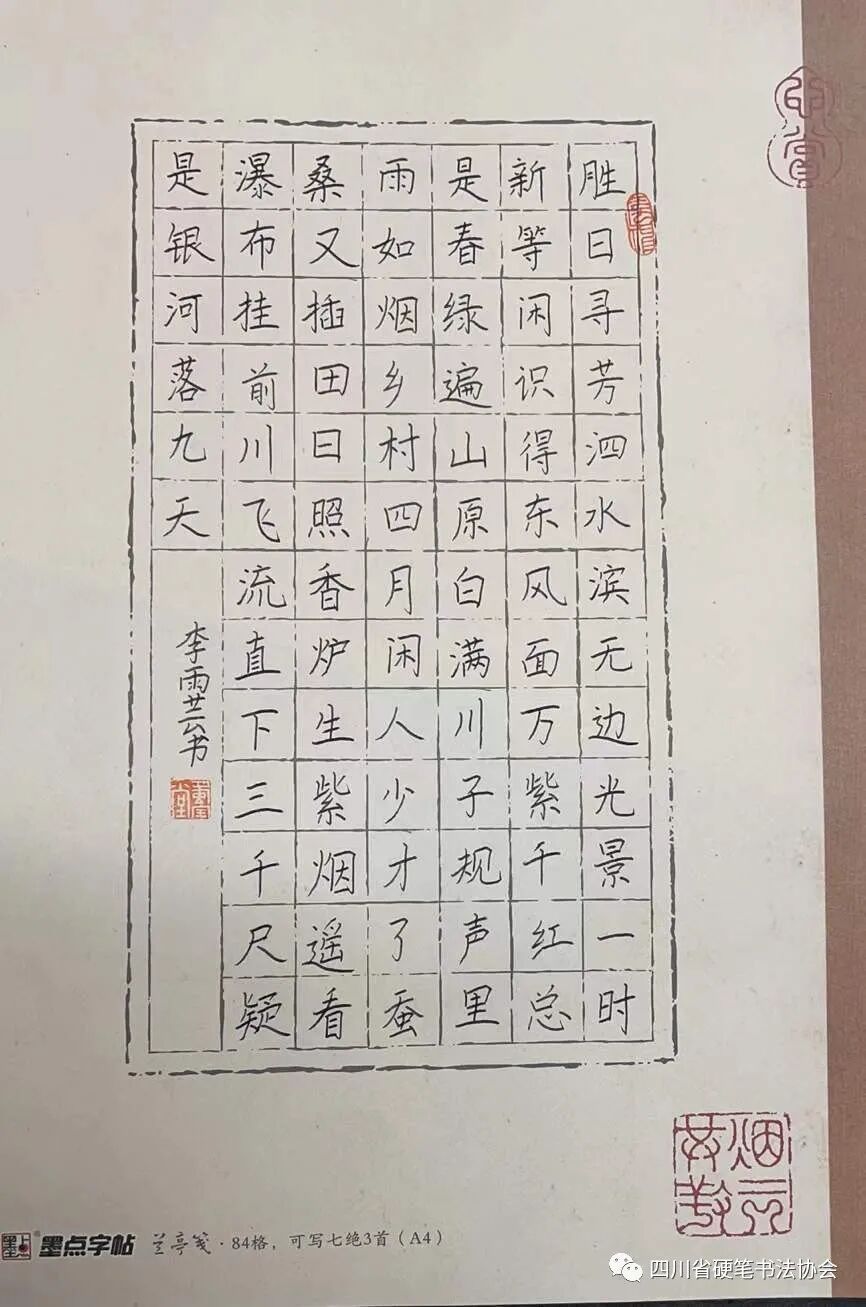 胜日寻芳泗水滨无边光景一时
新等闲识得东风面万紫千红总
是春绿遍山原白满川子规声里
雨如烟乡村四月闲人少才了蚕
桑又插田日照香炉生紫烟遥看
瀑布挂前川飞流直下三千尺疑
是银河落九天
李雨芸书
墨点字帖 兰亭笺·84格，可写七绝3首（A4）
四川省硬笔书法协会